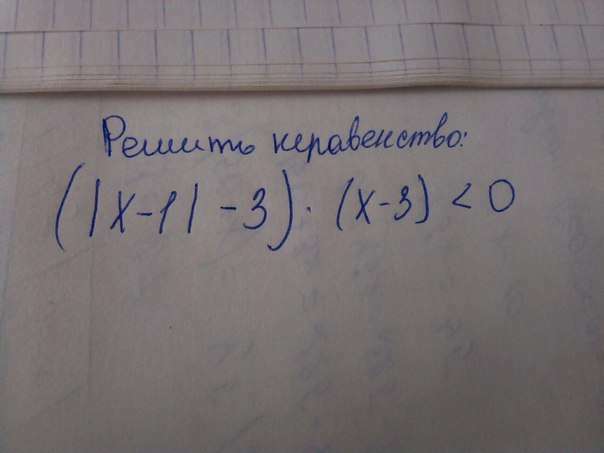 Решить неравенство:
(|x-1|-3)·(x-3)<0